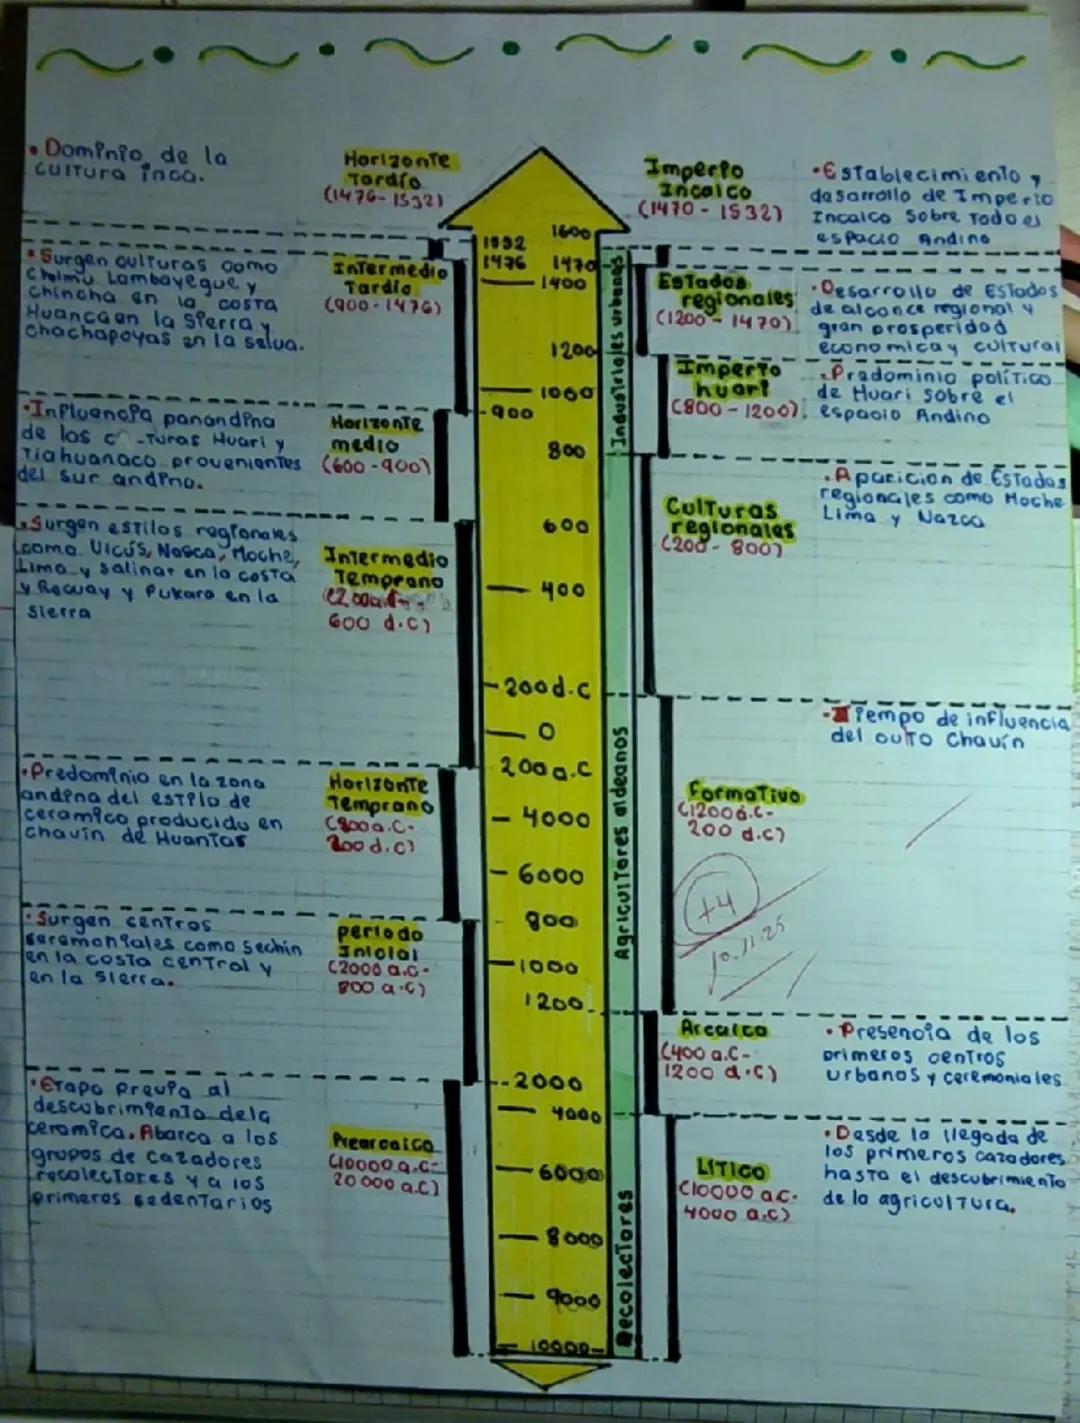 • Dominio de la
cultura inca.
Horizonte
Tardío
(1476-1532)
• Surgen culturas como
Chimú Lambayeque y
Chincha en la costa
Huanca en la sierra y
chachapoyas en la selva.
Intermedio
Tardío
(900-1476)
• Influencia panandina
de las Huari y
Tiahuanaco provenientes
del sur andino.
Horizonte
medio
(600-900)
• Surgen estilos regionales
como Vicús, Nasca, Moche,
Lima y Salinar en la costa
y Recuay y Pukara en la
sierra
Intermedio
Temprano
600 d.C)
• Predominio en la zona
andina del estilo de
ceramica producido en
chavín de Huantas
Horizonte
Temprano
(800 a.C-
200 d.C)
• Surgen centros
ceremoniales como sechín
en la costa central y
en la sierra.
periodo
Inicial
(2000 a.C-
800 a.C)
• Etapa previa al
descubrimiento dela
ceramica. Abarca a los
grupos de cazadores
recolectores y a los
primeros sedentarios
Prearcaico
(10000 a.C-
20000 a.C)
1600
1532
1476 1470
1400
1200
1000
900
800
600
400
200 d.C
0
200 a.C
4000
6000
800
1000
1200
2000
4000
6000
8000
9000
10000
Industriales urbanos
Agricultores aldeanos
Recolectores
Imperio
Incaico
(1470-1532)
• Establecimiento y
dasarrollo de Imperio
Incaico Sobre Todo es
espacio Andino
Estados
regionales
(1200-1470)
• Desarrollo de Estados
de alcance regional y
gran prosperidad
economica y cultural
Imperio
huari
(800-1200)
• Predominio político
de Huari sobre el
espacio Andino
Culturas
regionales
(200-800)
• Aparicion de Estados
regionales como Moche
Lima y Nazca
Formativo
(1200 d.C-
200 d.C)
• Tiempo de influencia
del culto Chavín
+4
10.11.25
Arcaico
(400 a.C-
1200 d.C)
• Presencia de los
primeros centros
urbanos y ceremoniales
LITICO
(10000 a.C.
4000 a.C)
• Desde la llegada de
los primeros cazadores
hasta el descubrimiento
de la agricultura.